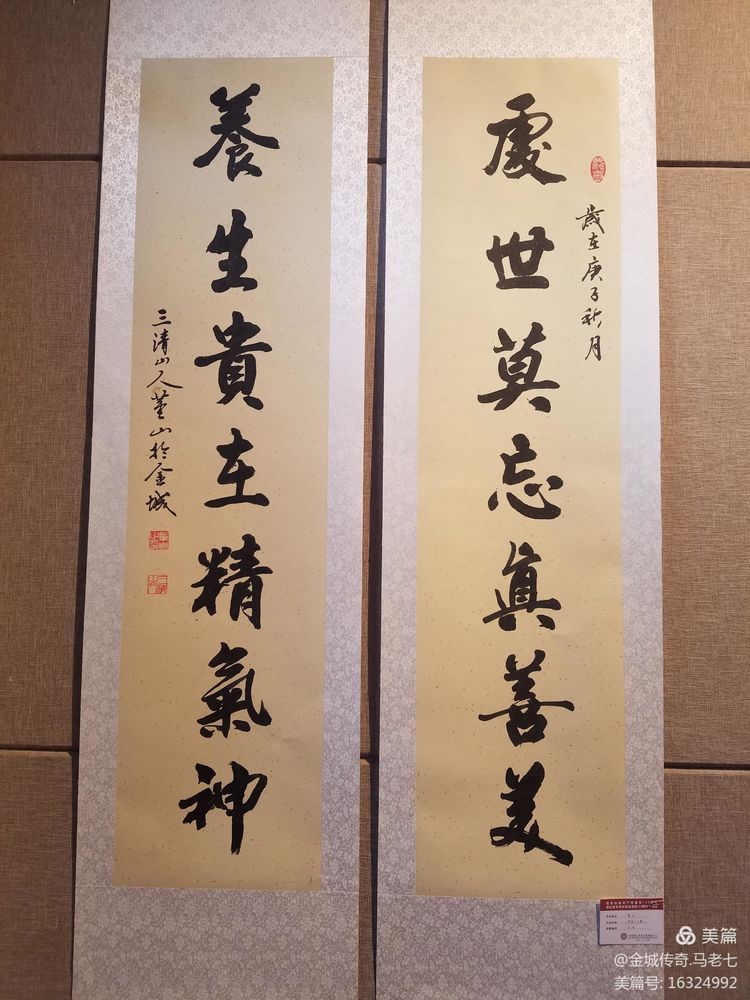 歲在庚子秋月
處世莫忘真善美
養生貴在精氣神
三清山人董山於金城
美篇
@金城传奇.马老七
美篇号: 16324992